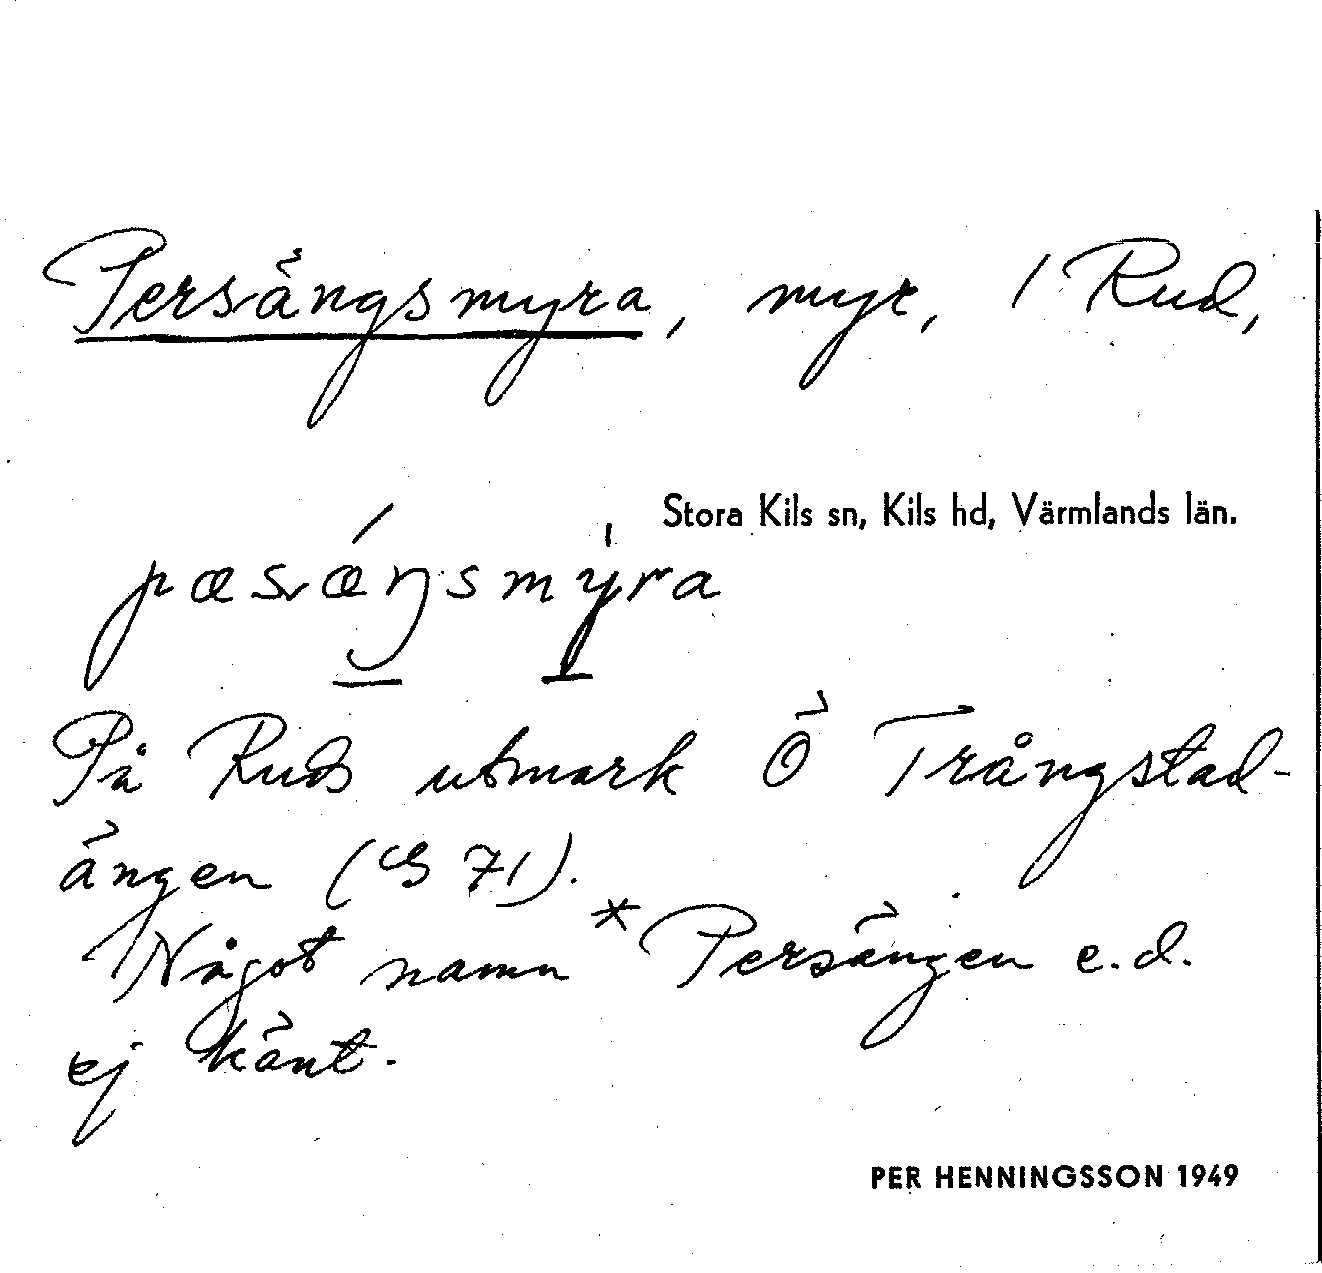 Persängsmyra, myr, / Rud,
Stora Kils sn, Kils hd, Värmlands län.
pæsæŋsmyra
På Ruds utmark Ö Trångstad-
ängen (S 71).
Något namn *Persängen e.d.
ej känt.
PER HENNINGSSON 1949